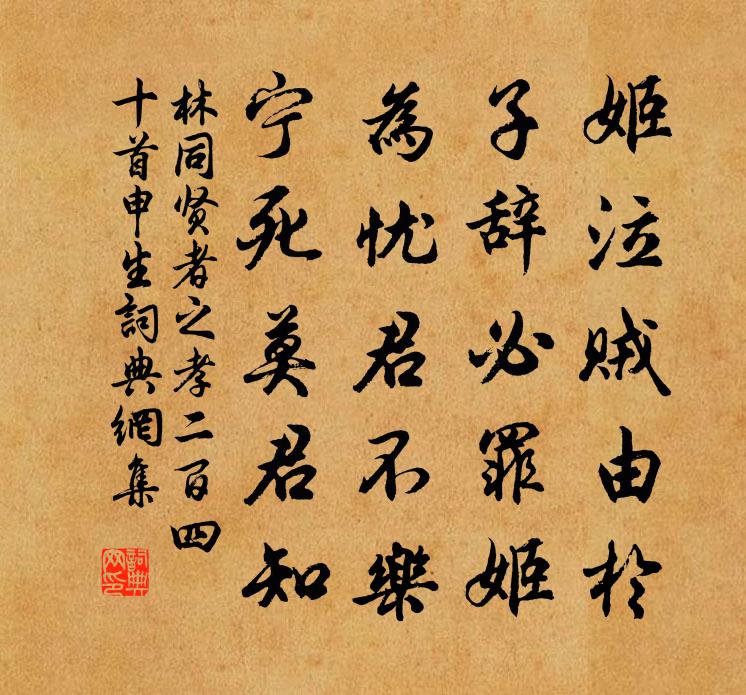 姬泣贼由於
子辞必罪姬
為忧君不樂
宁死莫君知
林同贤者之孝二百四
十首申生詞典網集
詞典
网印